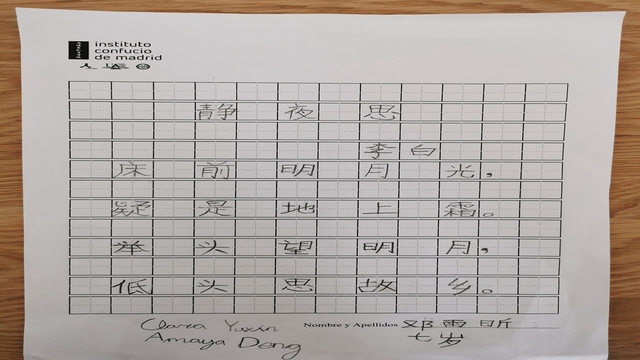 instituto
confucio
de madrid
静夜思
李白
床前明月光，
疑是地上霜。
举头望明月，
低头思故乡。
Clara Yuxin
Nombre y Apellidos 邓雨昕
Amaya Deng
七岁